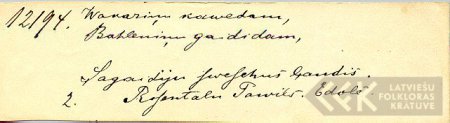 12194. Wakariņu kawedam,
Bahleniņu gaididam,
Sagaidiju sweschus laudis.
2. Rosentalu Pawils. Edolē
LATVIEŠU
FOLKLORAS
KRĀTUVE